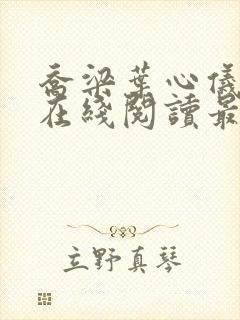 喬梁葉心儀
在綫閱讀最
立野真琴